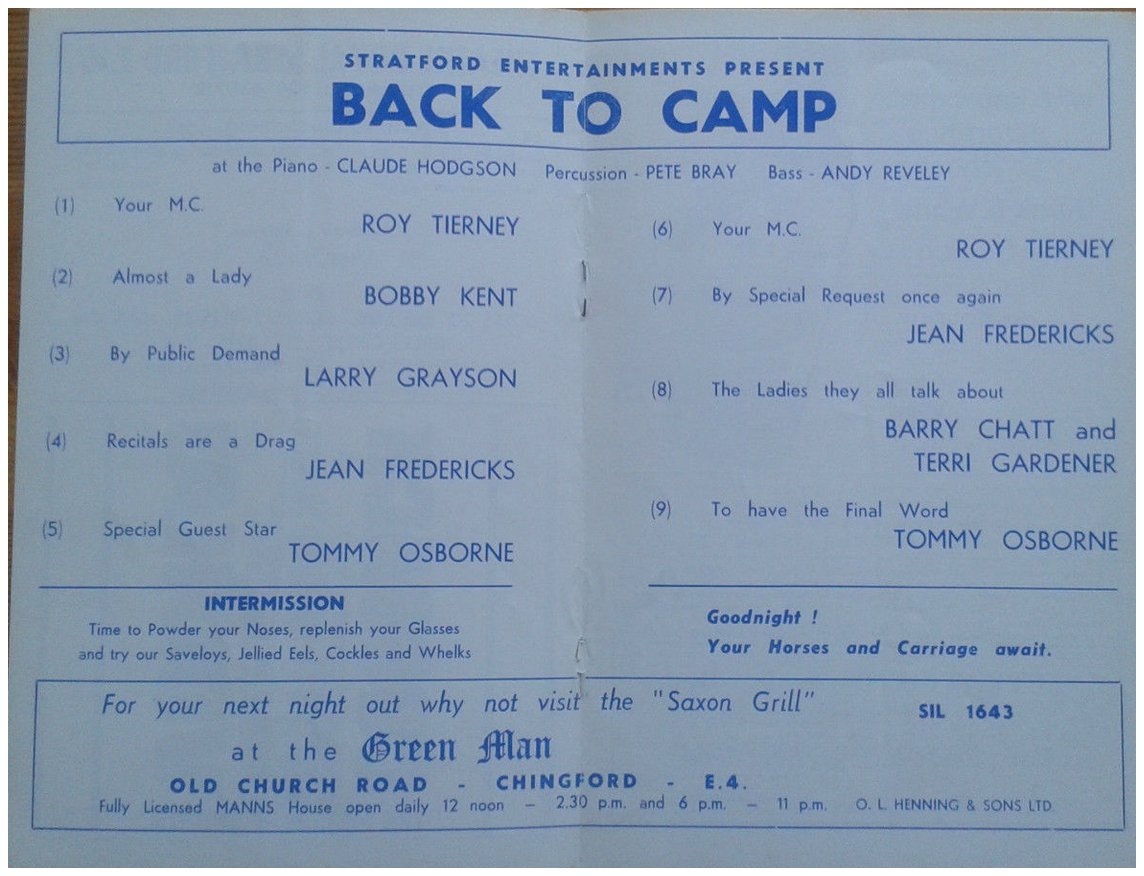 STRATFORD ENTERTAINMENTS PRESENT
BACK TO CAMP
at the Piano - CLAUDE HODGSON Percussion - PETE BRAY Bass - ANDY REVELEY
(1) Your M.C.
ROY TIERNEY
(2) Almost a Lady
BOBBY KENT
(3) By Public Demand
LARRY GRAYSON
(4) Recitals are a Drag
JEAN FREDERICKS
(5) Special Guest Star
TOMMY OSBORNE
INTERMISSION
Time to Powder your Noses, replenish your Glasses
and try our Saveloys, Jellied Eels, Cockles and Whelks
(6) Your M.C.
ROY TIERNEY
(7) By Special Request once again
JEAN FREDERICKS
(8) The Ladies they all talk about
BARRY CHATT and
TERRI GARDENER
(9) To have the Final Word
TOMMY OSBORNE
Goodnight !
Your Horses and Carriage await.
For your next night out why not visit the "Saxon Grill" SIL 1643
at the Green Man
OLD CHURCH ROAD - CHINGFORD - E.4.
Fully Licensed MANNS House open daily 12 noon — 2.30 p.m. and 6 p.m. — 11 p.m. O. L. HENNING & SONS LTD